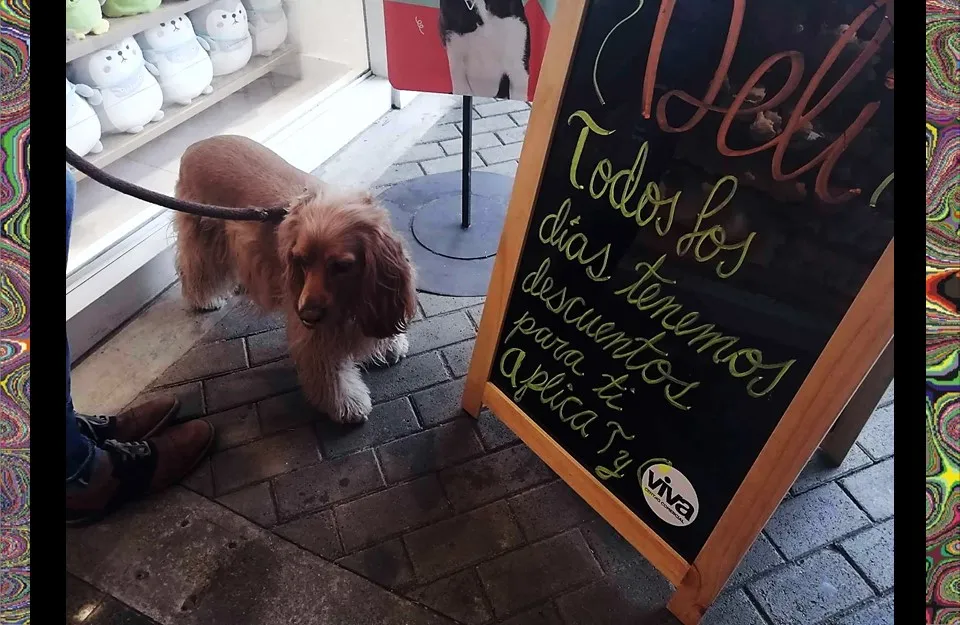 Deli
Todos los
días tenemos
descuentos
para ti
Aplica T y
viva